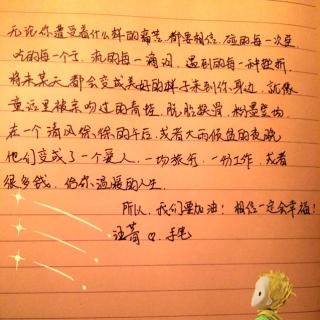 无论你遭受着什么样的痛苦,都要相信,碰的每一次壁
吃的每一个亏,流的每一滴泪,遇到的每一种挫折
将来某天都会变成美好的样子来到你身边,就像
童话里被亲吻过的青蛙,脱胎换骨,粉墨登场
在一个清风徐徐的午后,或者大雨倾盆的夜晚
他们变成了一个爱人,一场旅行,一份工作,或者
很多钱,给你温暖的人生.
所以,我们要加油!相信一定会幸福!